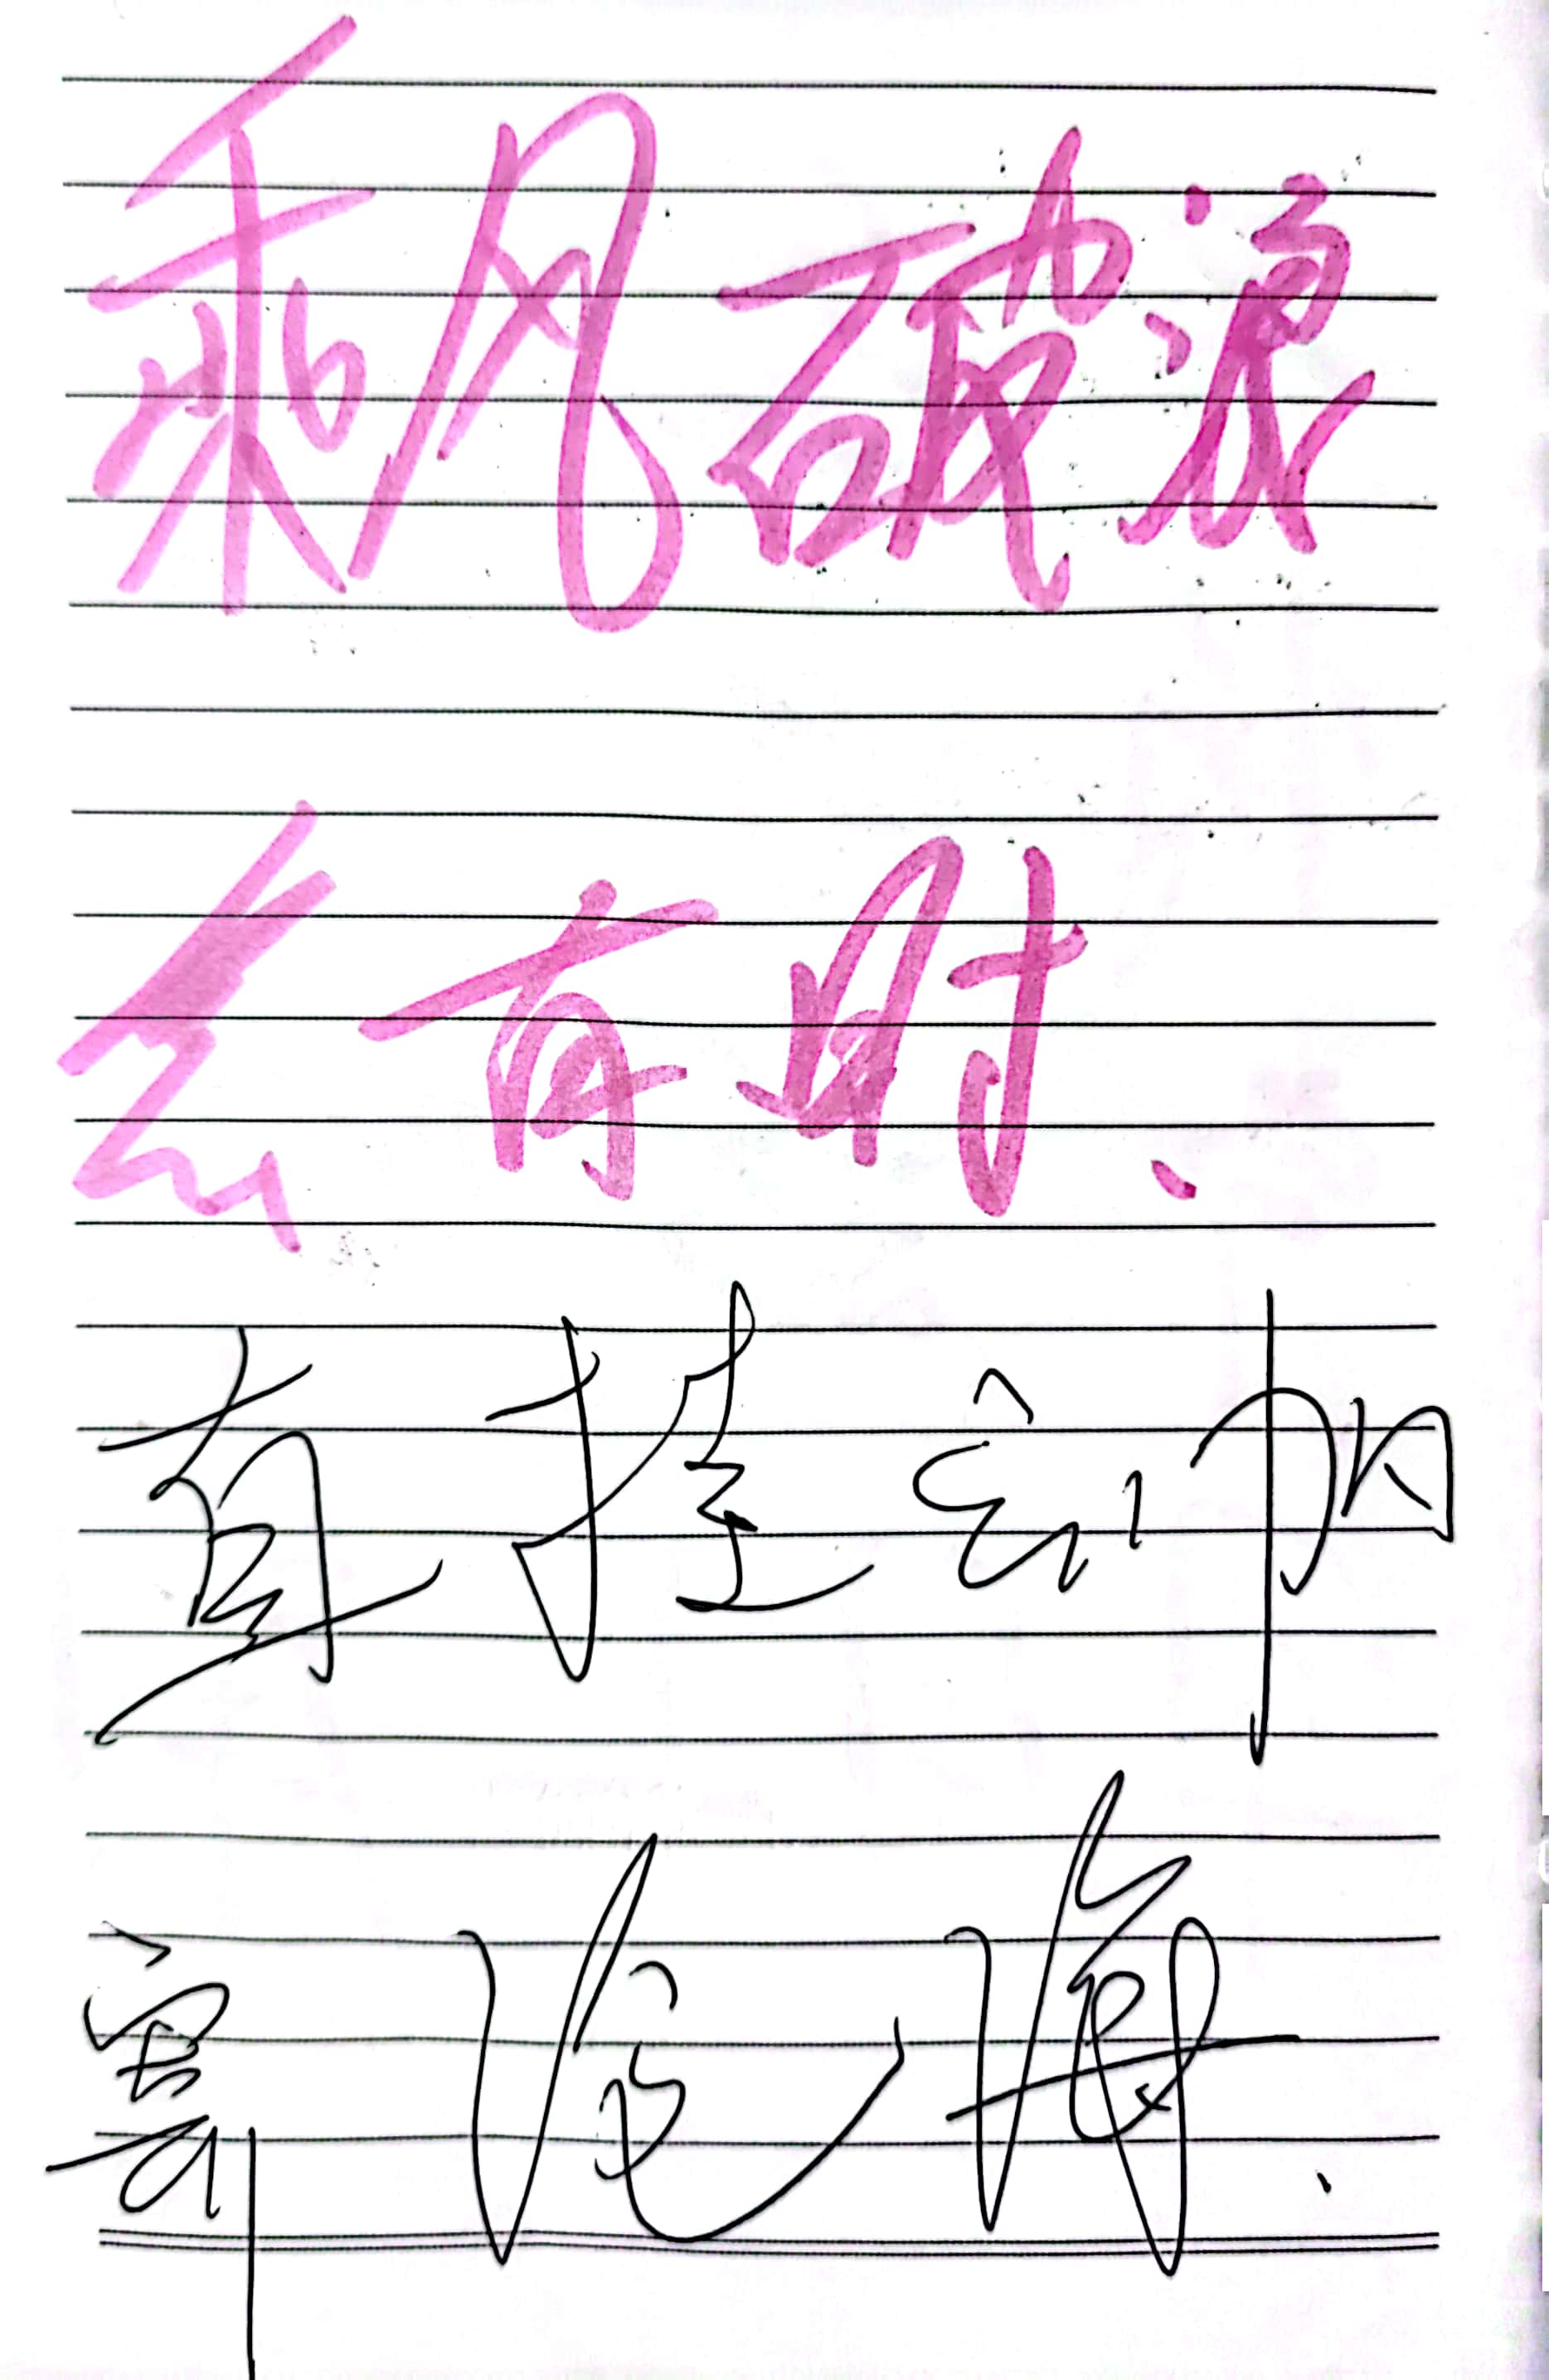 乘风破浪
会有时、
直挂云帆
寄沧海.